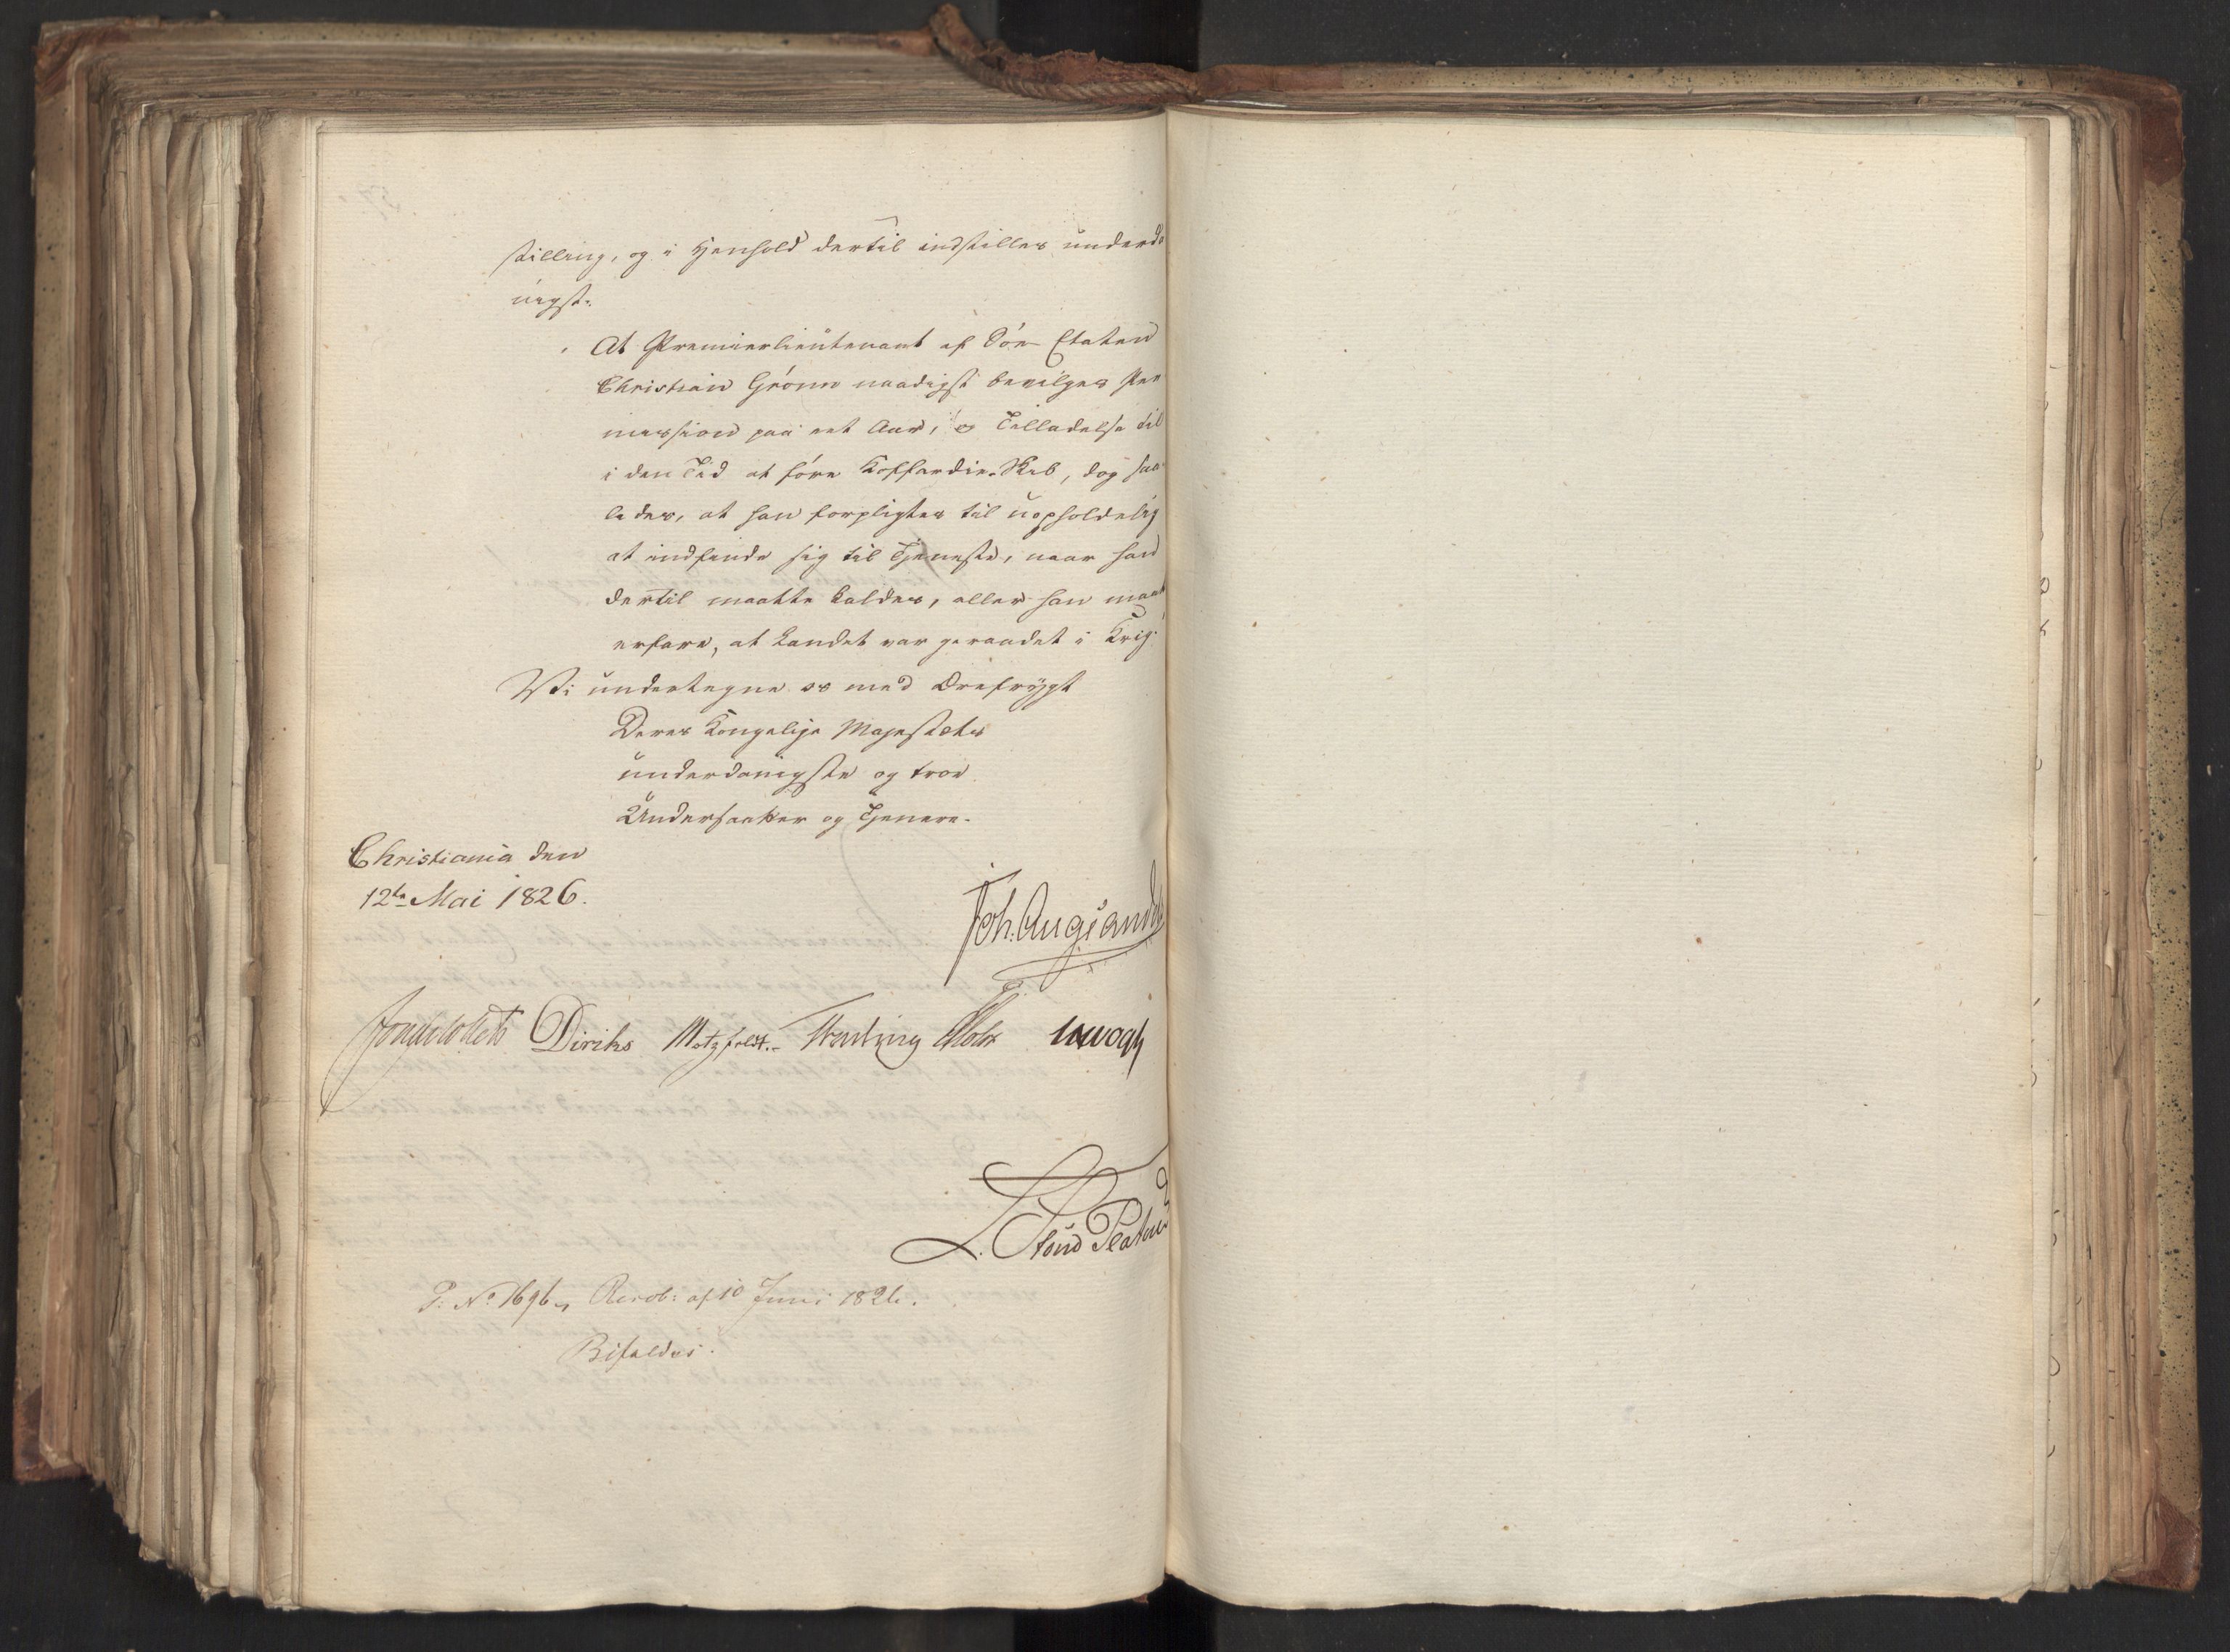 stilling, og i Henhold dertil indstilles underda
nigst:
At Premierlieutenant af Søe-Etaten
Christian Grønn naadigst bevilges Per
mission paa eet Aar, og Tilladelse til
i den Tid at føre Koffardie-Skib, dog saa
ledes, at han forpligtes til uopholdelig
at indfinde sig til Tjeneste, naar han
dertil maatte kaldes, eller han maat
erfare, at Landet var geraadet i Krig.
Vi undertegne os med Ærefrygt
Deres Kongelige Majestæts
underdanigste og troe
Undersaatter og Tjenere.
Christiania den
12te Mai 1826.
Joh. Aug: Sandels
Jonas Collett Diriks Motzfeldt. Treschow Holst Krogh
L. Stoud Platou
P: No 1696, Resol: af 10 Juni 1826.
Bifaldes.